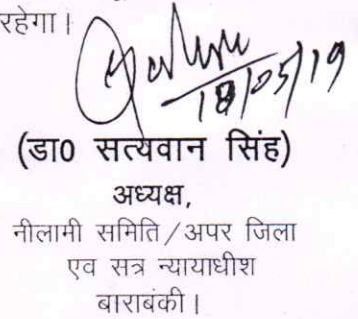 रहेगा।
18/05/19
(डा0 सत्यवान सिंह)
अध्यक्ष,
नीलामी समिति/अपर जिला
एव सत्र न्यायाधीश
बाराबंकी।